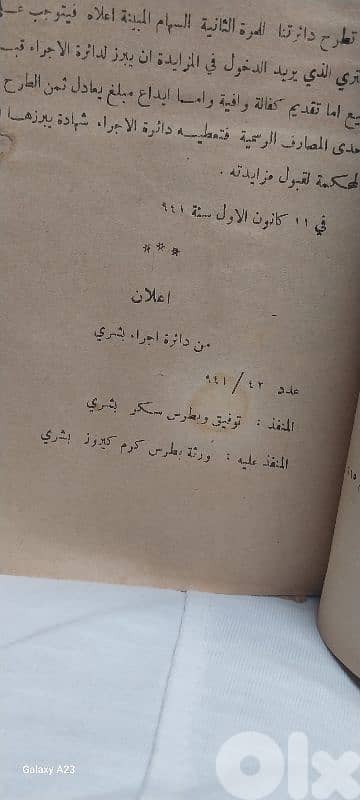 تطرح دائرتنا للمرة الثانية السهام المبينة اعلاه فيتوجب
تري الذي يريد الدخول في المزايدة ان يبرز لدائرة الاجراء
يع اما تقديم كفالة وافية واما ايداع مبلغ يعادل ثمن الطرح
حدى المصارف الرسمية فتعطيه دائرة الاجراء شهادة يبرزها
لمحكمة لقبول مزايدته .
في ١١ كانون الاول سنة ٩٤١
***
اعلان
من دائرة اجراء بشري
عدد ٤٢ / ٩٤١
المنفذ : توفيق وبطرس سكر بشري
المنفذ عليه : ورثة بطرس كرم كيروز بشري
Galaxy A23
Olx